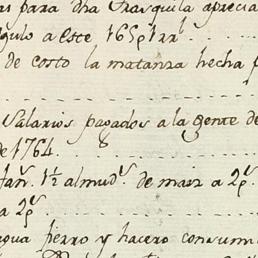 para dha trasquila aprecia
gulo a este 165ps 1rl
de costo la matanza hecha p
Salarios pagados a la gente de
de 1764
1½ almuds. de maiz a 2ps
a 2ps
gua fierro y hacero consumi